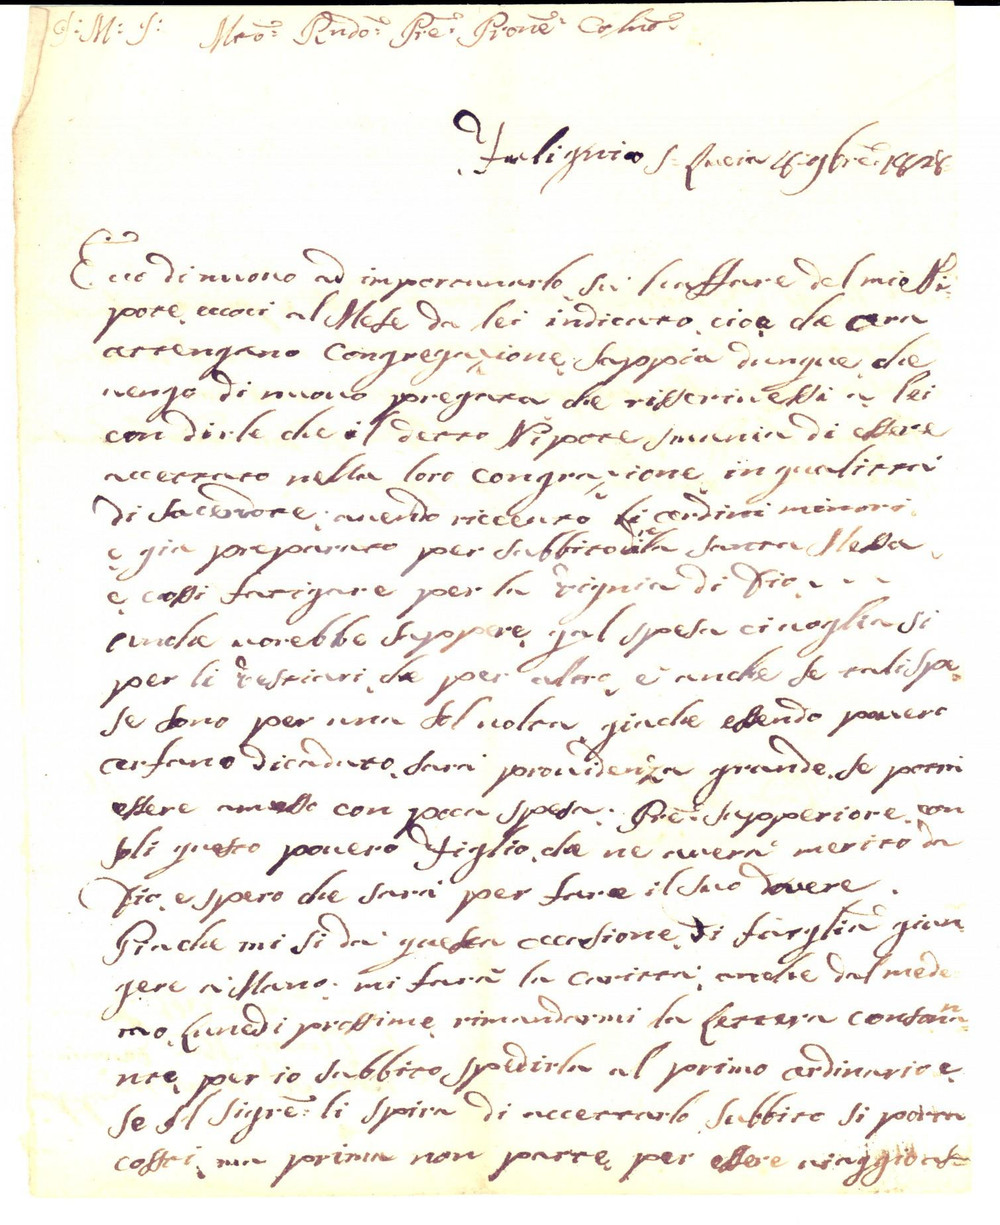 G: M: G: Mto: Rndo: Pre: Prone: Colmo:
Fulignio S. Lucia 4 9bre: 1828
Ecco di nuovo ad importunarlo su l'affare del mio Ni-
pote, eccoci al Mese da lei indicato, cioè che ora
attengano Congregazione. Sappia dunque che
vengo di nuovo pregata che risscrivessi a lei
con dirle che il detto Nipote smania di essere
accettato nella loro congrazione in qualittà
di Sacerdote; avendo riceuto li ordini minori,
e già preparato per subbito dire la santa Messa,
e cossì fatigare per la vignia di Dio,
anche vorebbe suppere qual spesa ci voglia sì
per li vestiari che per altro, e anche se tali spe-
se sono per una sol volta, giache essendo povero
orfano dicaduto, sarà providenza grande, se potrà
essere amesso con poca spesa. Pre: Supperiore, con
soli questo povero Figlio, che ne averà merito da
Dio, e spero che sarà per fare il suo dovere.
Giache mi si dà questa occasione di fargliela giun
gere a Mano, mi farà la carittà, anche dal mede-
mo Lunedì prossimo rimandarmi la Lettera conson-
nte, per io subbito spedirla al primo ordinario, e
se il Sigre: li spira di accettarlo subbito si porta
costì, ma prima non parte, per essere viaggio as-